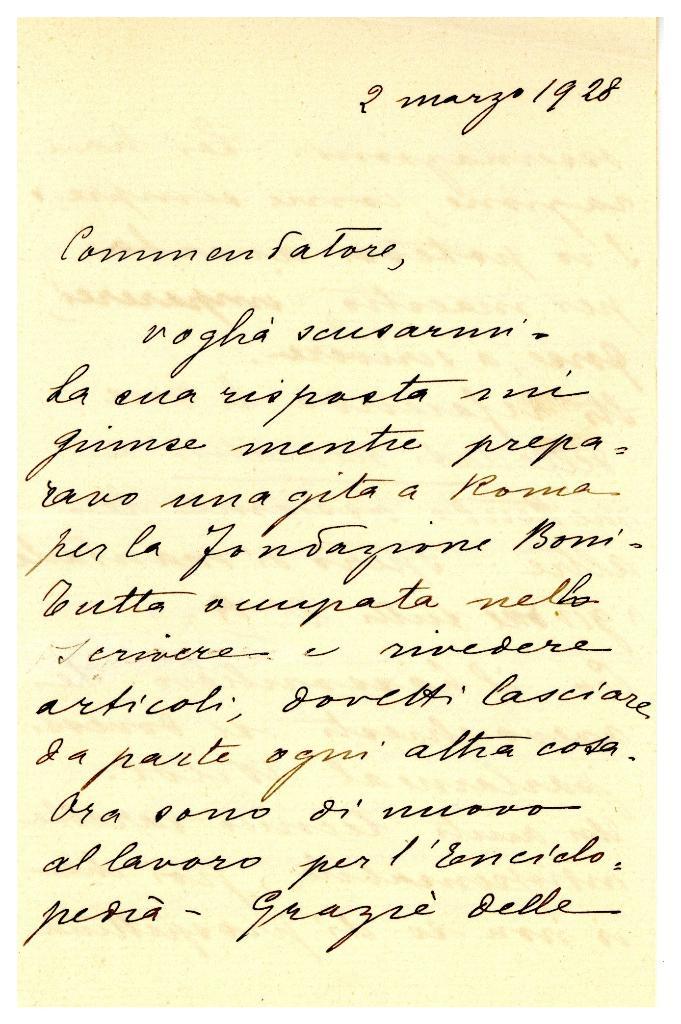 2 marzo 1928
Commendatore,
voglia scusarmi.
La sua risposta mi
giunse mentre prepa=
ravo una gita a Roma
per la fondazione Boni.
Tutta occupata nello
scrivere e rivedere
articoli, dovetti lasciare
da parte ogni altra cosa.
Ora sono di nuovo
al lavoro per l'Enciclo=
pedia - Grazie delle